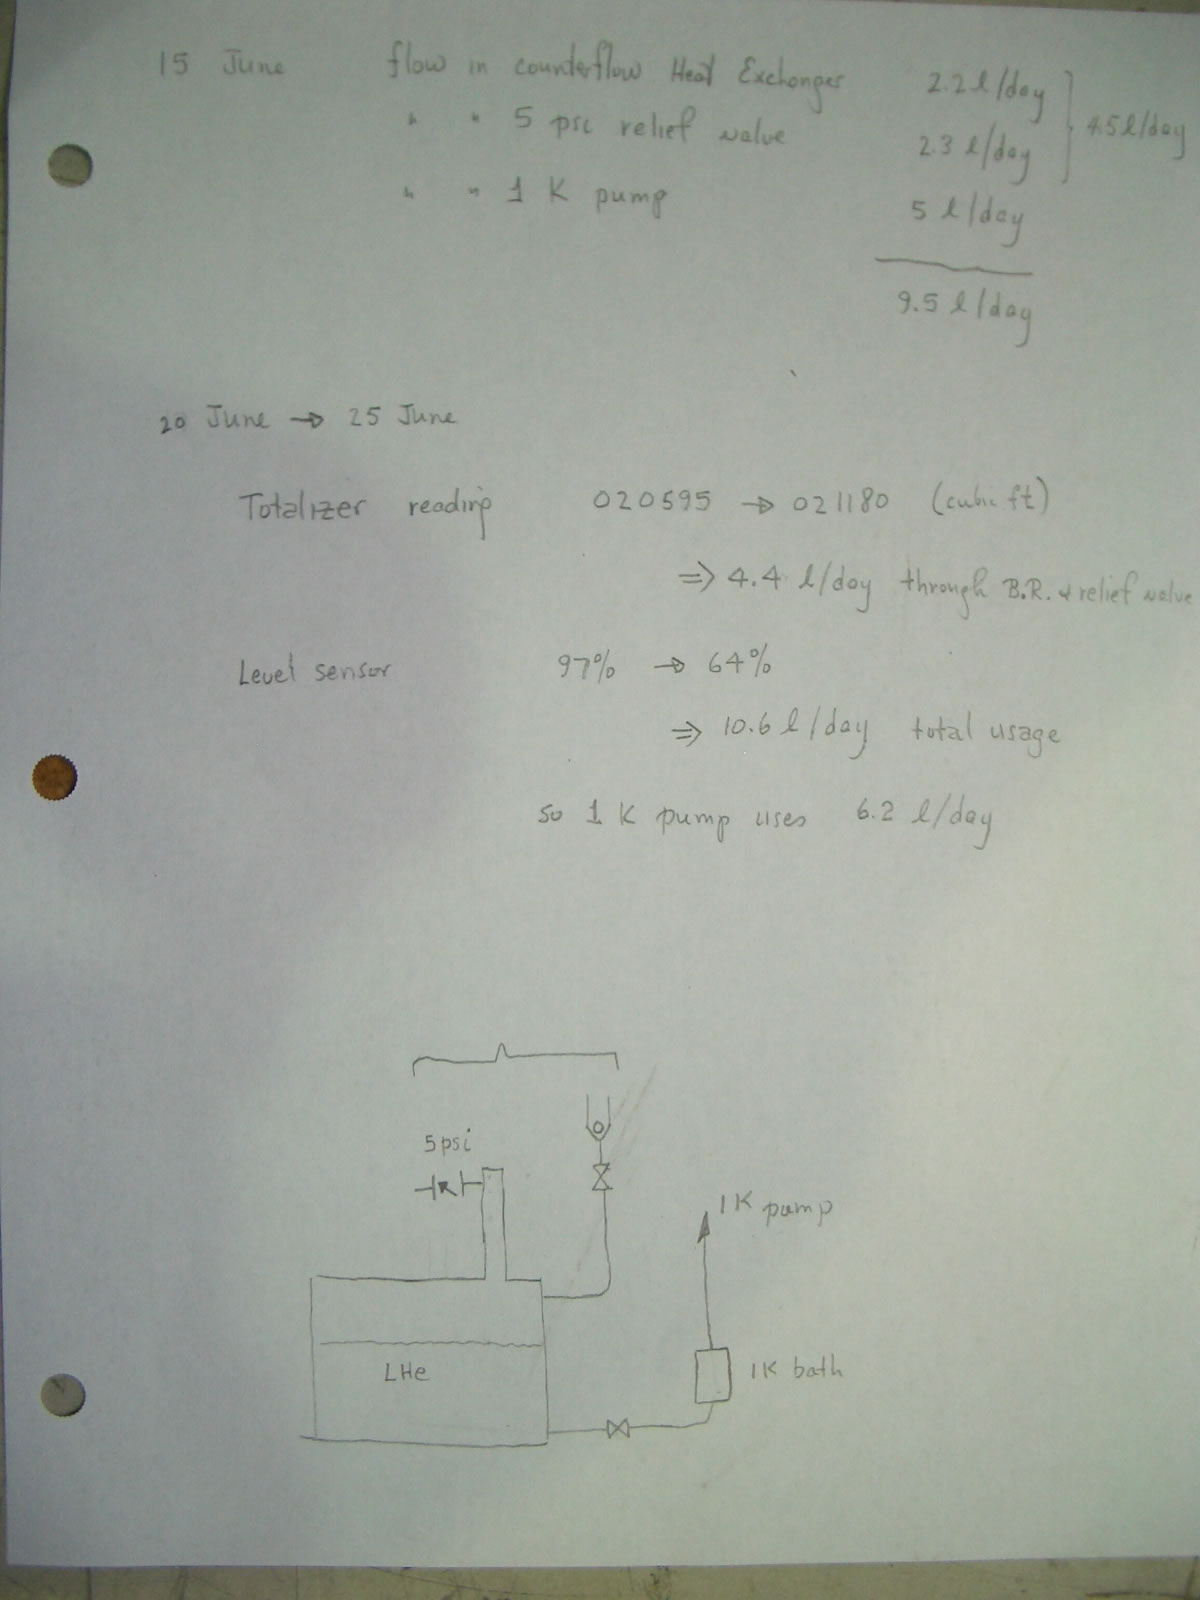 15 June flow in counterflow Heat Exchanger 2.2 l/day
" " 5 psi relief valve 2.3 l/day } 4.5 l/day
" " 1 K pump 5 l/day
9.5 l/day
20 June → 25 June
Totalizer reading 020595 → 021180 (cubic ft)
⇒ 4.4 l/day through B.R. & relief valve
Level sensor 97% → 64%
⇒ 10.6 l/day total usage
so 1 K pump uses 6.2 l/day
5 psi
1K pump
LHe
1K bath